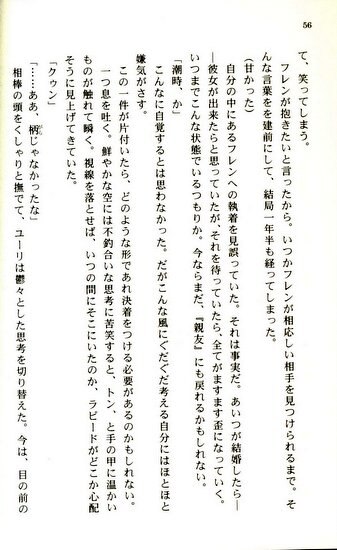 56
て、笑ってしまう。
フレンが抱きたいと言ったから。いつかフレンが相応しい相手を見つけられるまで。そ
んな言葉をを建前にして、結局一年半も経ってしまった。
(甘かった)
自分の中にあるフレンへの執着を見誤っていた。それは事実だ。あいつが結婚したら―
―彼女が出来たらと思っていたが、それを待っていたら、全てがますます歪になっていく。
いつまでこんな状態でいるつもりか。今ならまだ、『親友』にも戻れるかもしれない。
「潮時、か」
こんなに自覚するとは思わなかった。だがこんな風にぐだぐだ考える自分にはほとほと
嫌気がさす。
この一件が片付いたら、どのような形であれ決着をつける必要があるのかもしれない。
一つ息を吐く。鮮やかな空には不釣合いな思考に苦笑すると、トン、と手の甲に温かい
ものが触れて瞬く。視線を落とせば、いつの間にそこにいたのか、ラピードがどこか心配
そうに見上げてきていた。
「クゥン」
「……ああ、柄じゃなかったな」
相棒の頭をくしゃりと撫でて、ユーリは鬱々とした思考を切り替えた。今は、目の前の